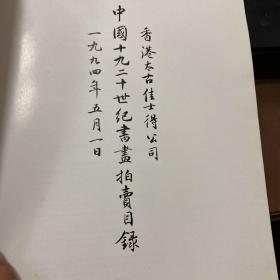 香港太古佳士得公司
中國十九二十世紀書畫拍賣目錄
一九九四年五月一日